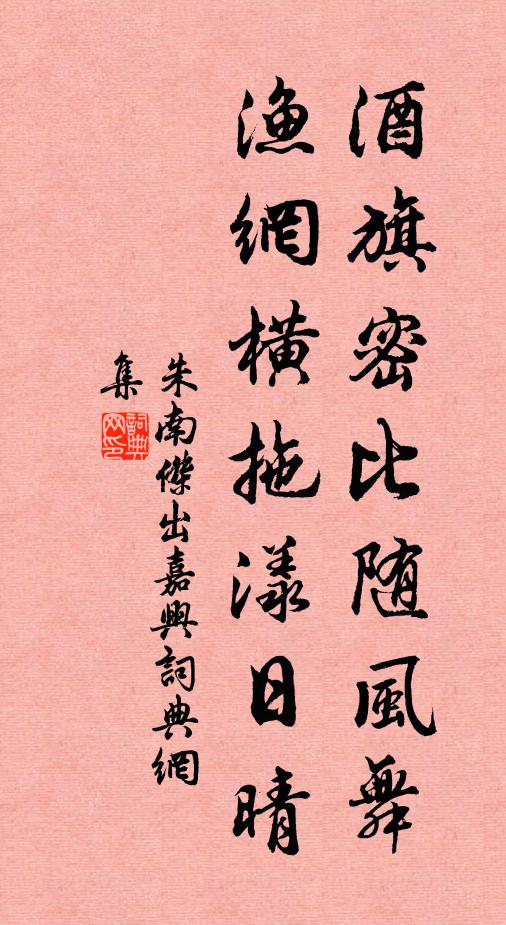 酒旗密比随風舞
漁網橫拖漾日晴
朱南傑出嘉興詞典網
集
詞典
网印